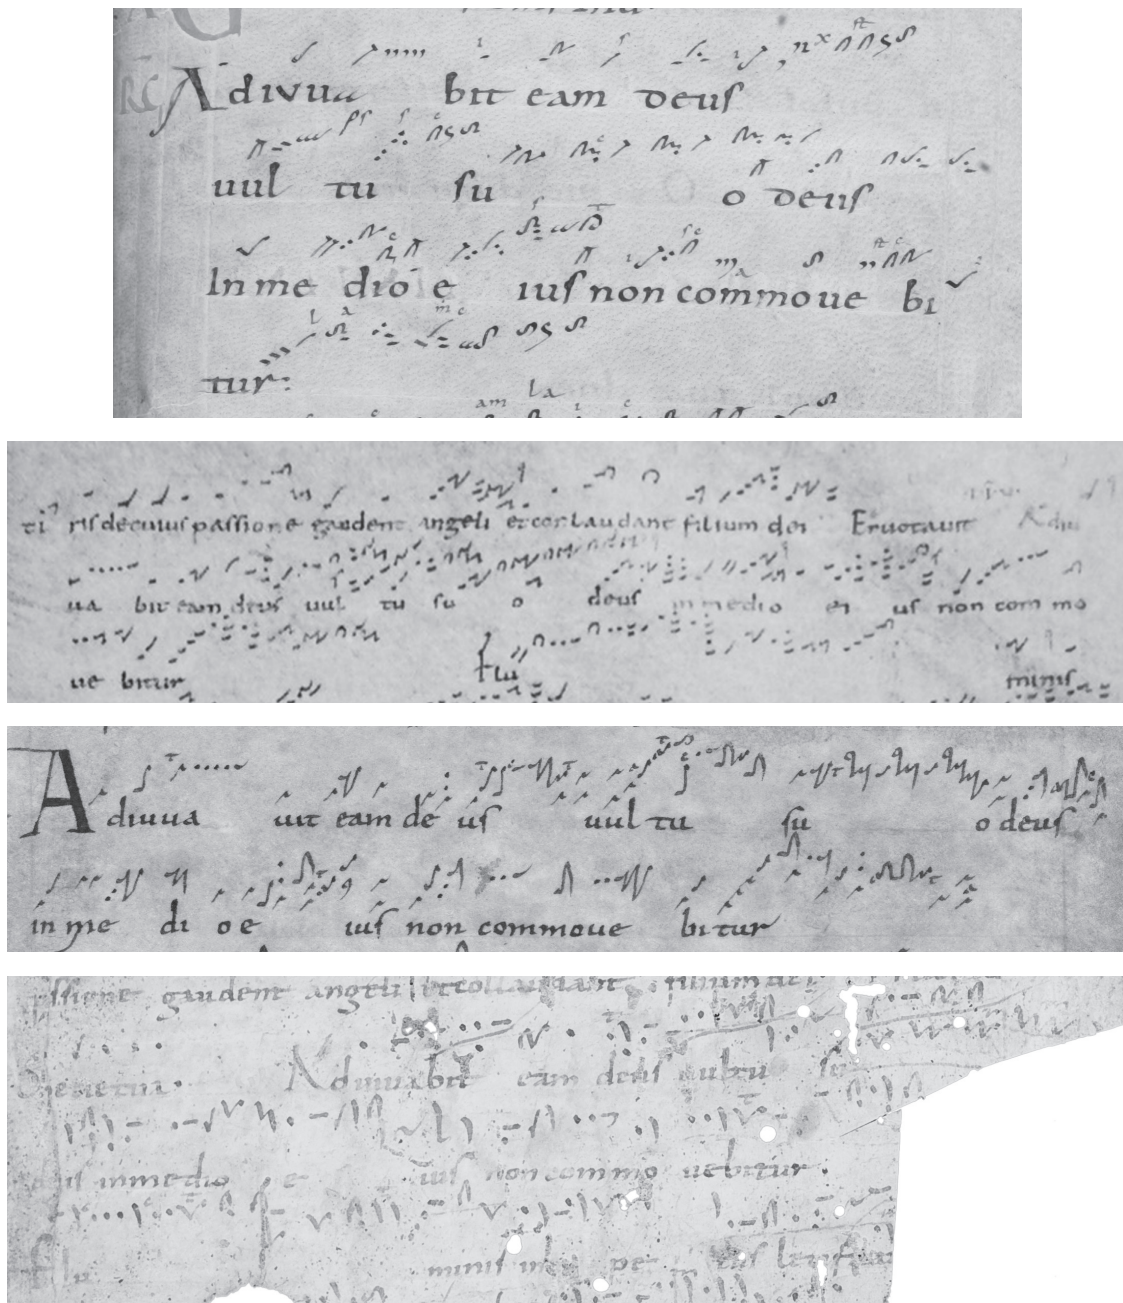 RG Adiuua bit eam deus
uul tu su o deus
In me dio e ius non commoue bi
tur:
am la
ti risdecuius passione gaudent angeli et conlaudant filium dei Eructauit Adiu
ua bit eam deus uul tu su o deus in medio ei us non com mo
ue bitur Flu minis
Adiuua uit eam de us uul tu su o deus
in me di o e ius non commoue bitur
ssione gaudent angeli et collaudant filium dei
Adiuuabit eam deus uultu su
deus inmedio e ius non commo uebitur.
Flu minis